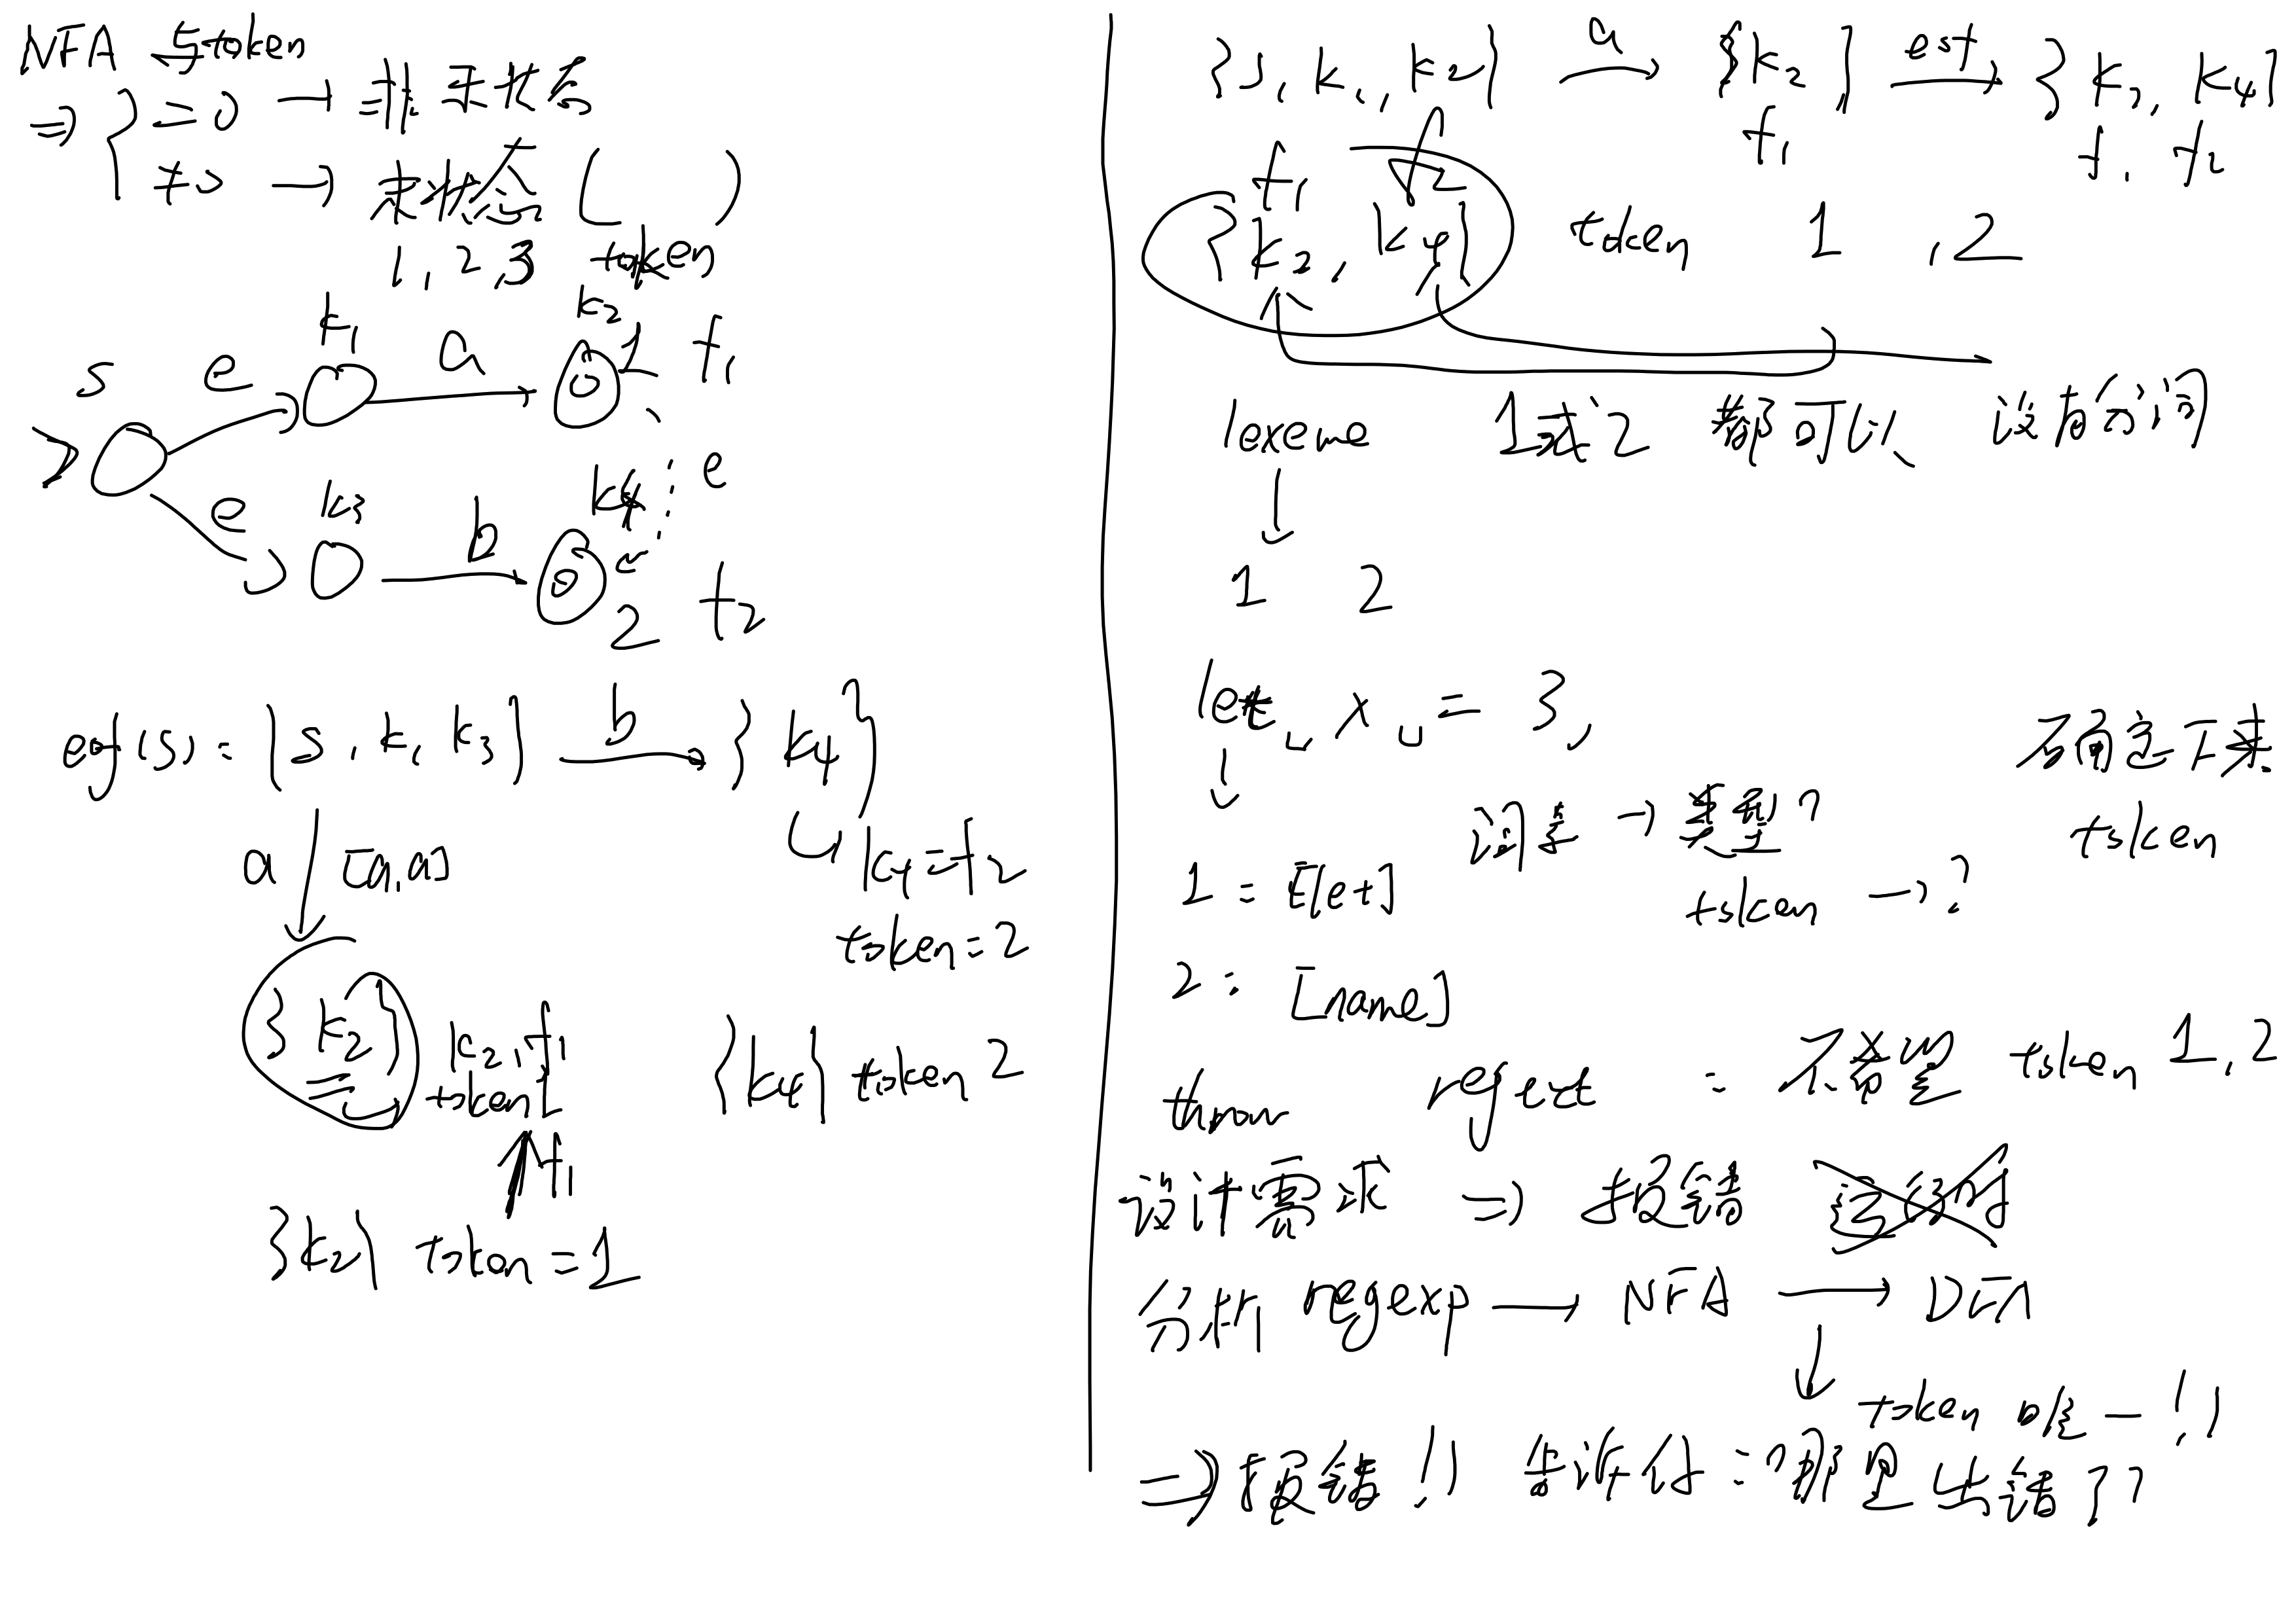 NFA 与token
⇒ { =0 → 非末状态
≠0 → 末状态 ( )
1, 2, 3 token
k₁ k₂
s e a 1 f₁
e k₃ b k₄ e
2 f₂
eof(s) = {s, k₁ k₃} b → {k₄}
a [a,a] k₄ = f₂
token=2
{k₂} k₂, f₁
token 1 {k₄} token 2
f₁
{k₂} token = 1
{s, k₁, k₂} a → {k₂} → {k₂, k₄}
f₁ f₁ f₂
f₁ f₂
{k₂, k₄} token 1 , 2
lexeme 1或2 都可以 没有分词
↓
1 2
let␣x␣= 3,
↓ 不确定下来
词素 → 类型? token
1 = [let] token → ?
2 : [name]
throw reject = 不希望 token 1,2
设计需求 ⇒ 报错 运行时
分析 regexp → NFA → DFA
↓ token 唯一!!
⇒ 报错!! 告诉你:哪里出错了?